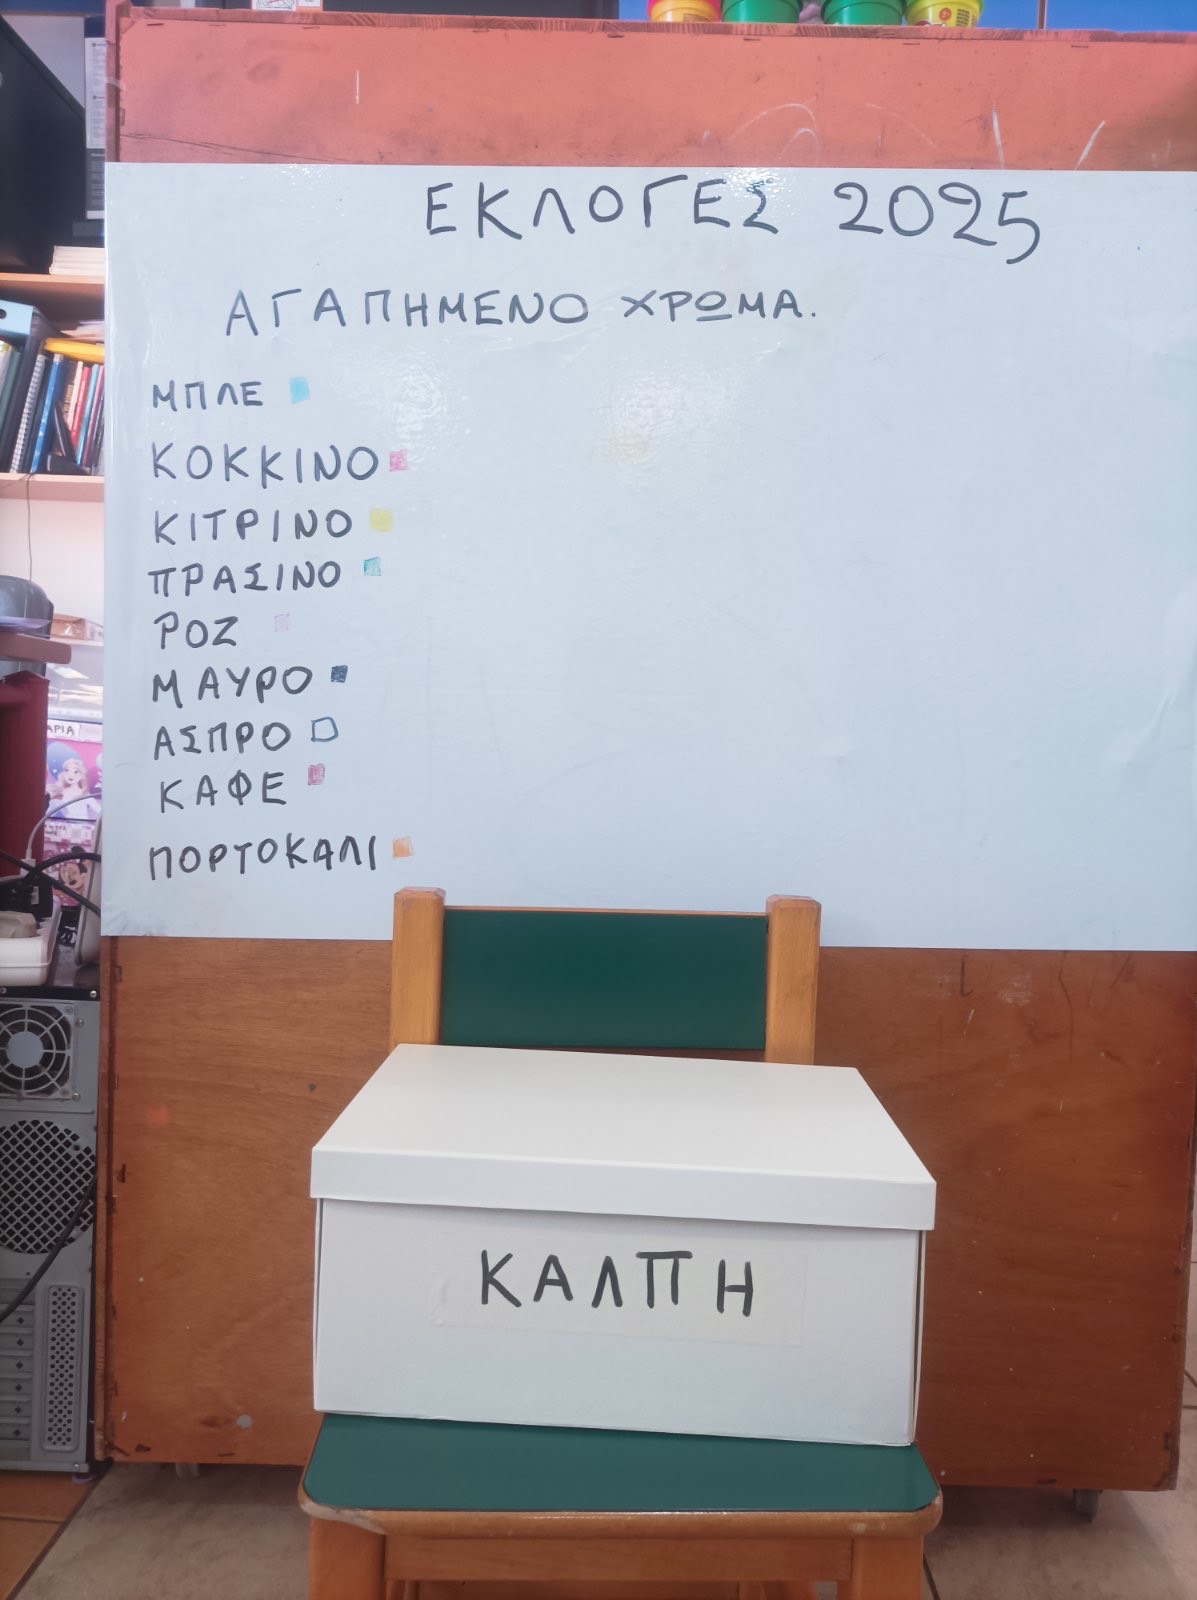 ΕΚΛΟΓΕΣ 2025
ΑΓΑΠΗΜΕΝΟ ΧΡΩΜΑ.
ΜΠΛΕ
ΚΟΚΚΙΝΟ
ΚΙΤΡΙΝΟ
ΠΡΑΣΙΝΟ
ΡΟΖ
ΜΑΥΡΟ
ΑΣΠΡΟ
ΚΑΦΕ
ΠΟΡΤΟΚΑΛΙ
ΚΑΛΠΗ